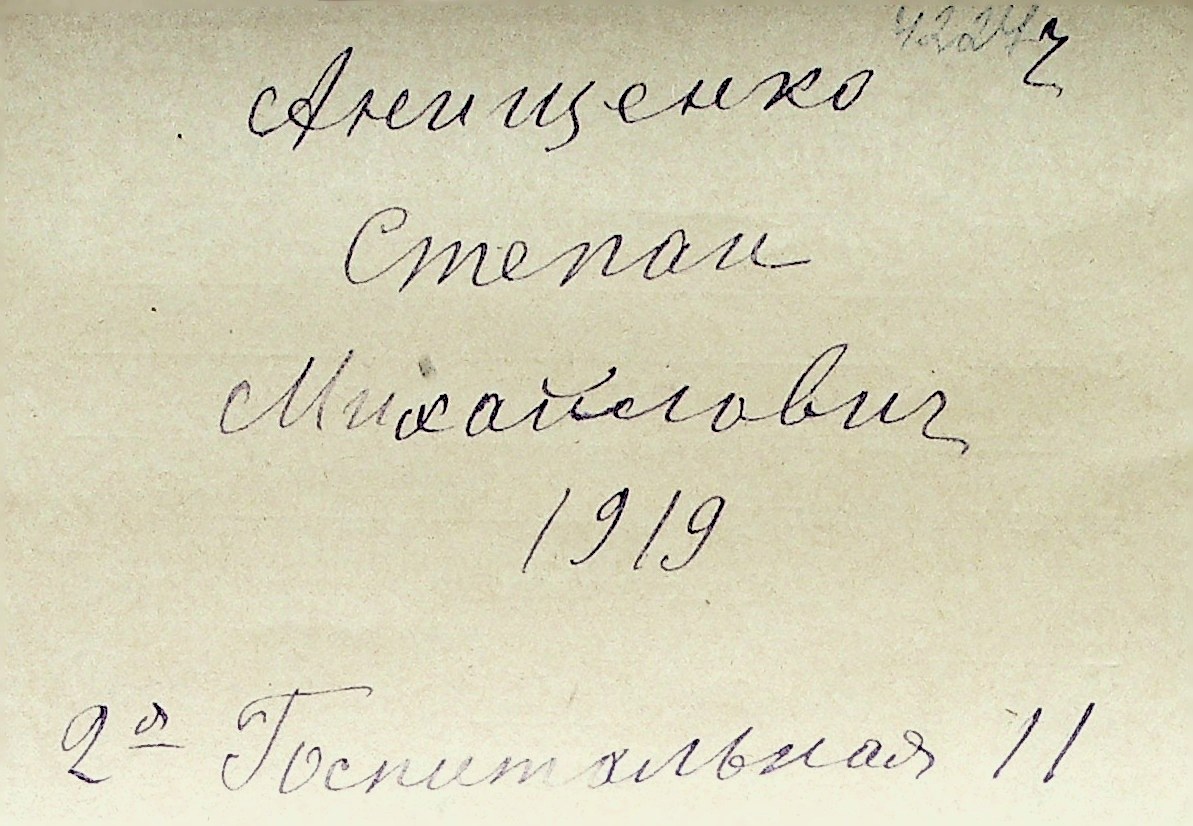 Анищенко
Степан
Михайлович
1919
2я Госпитальная 11